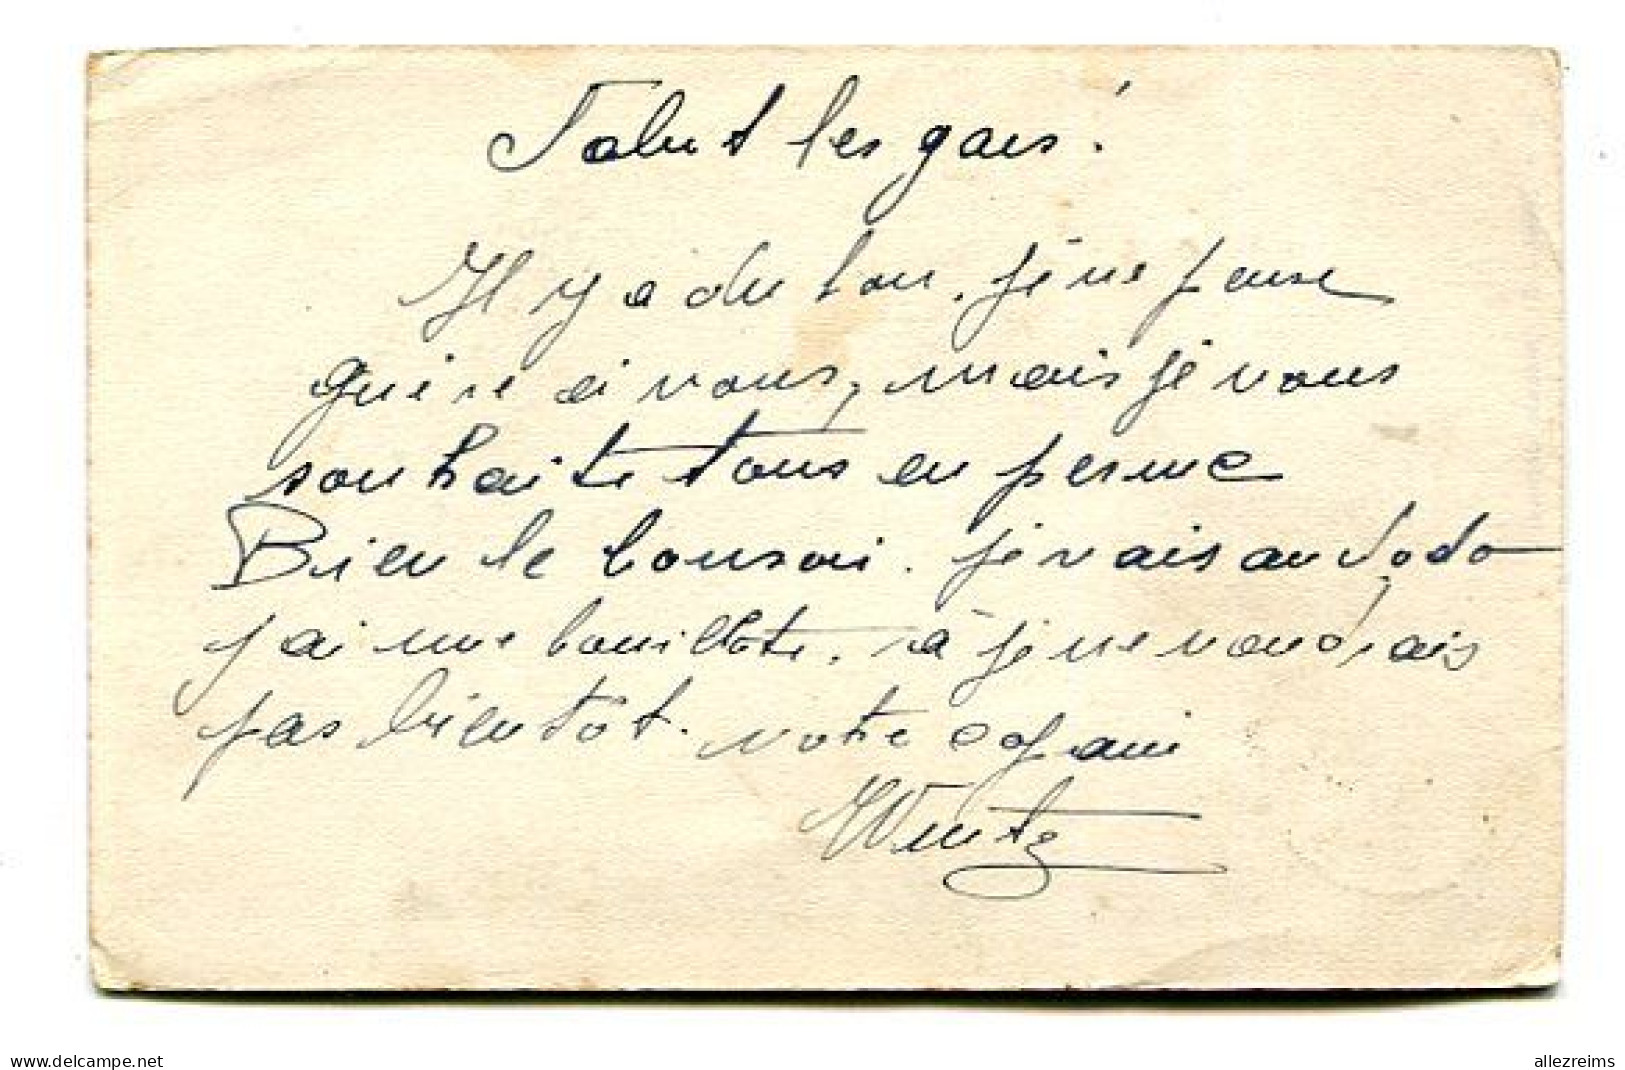 Salut les gars!
Il y a du bon, je ne pense
guère à vous, mais je vous
souhaite tous en perme
Bien le bonsoir. je vais au dodo
j'ai une bouillotte. à je ne voudrais
pas bientot. votre copain
Wentz
www.delcampe.net
allezreims